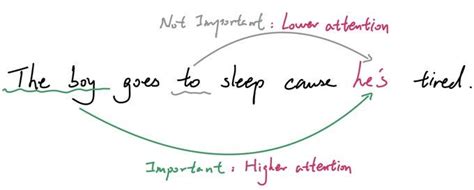 Not Important : Lower attention
The boy goes to sleep cause he's tired.
Important : Higher attention